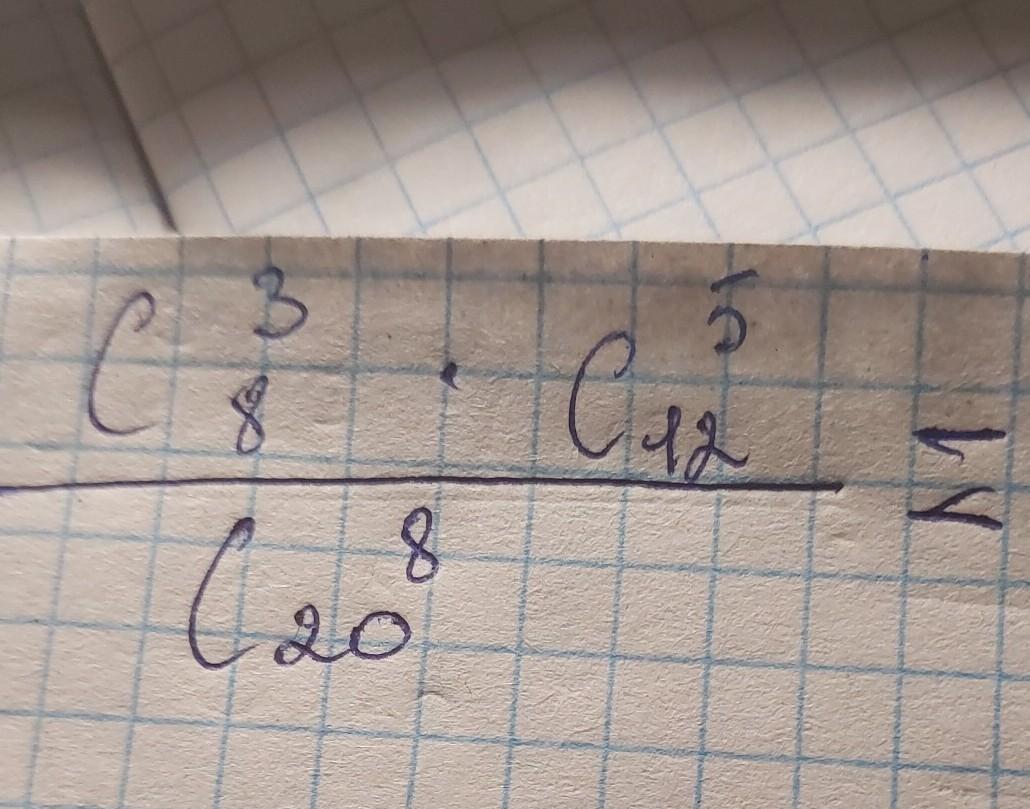 C₈³ · C₁₂⁵ =
C₂₀⁸